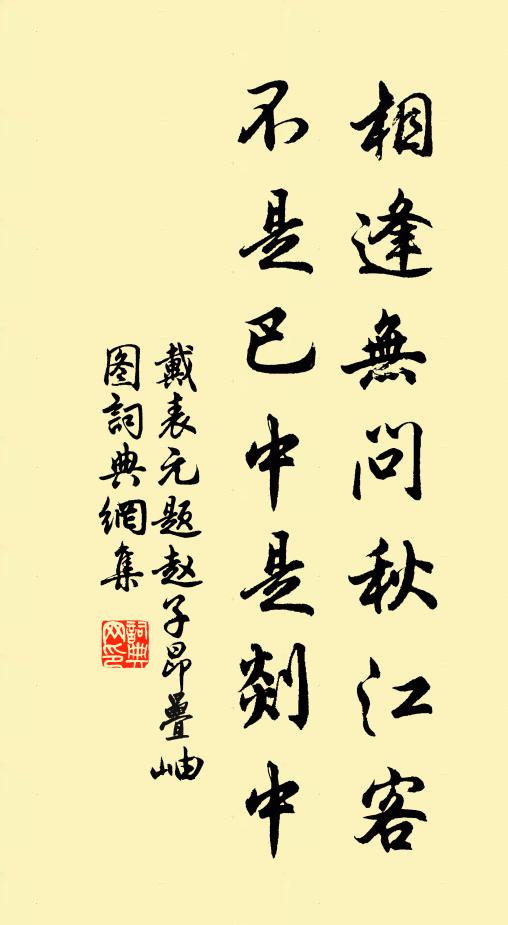 相逢無問秋江客
不是巴中是剡中
戴表元题赵子昂疊岫
图詞典網集
詞典网印